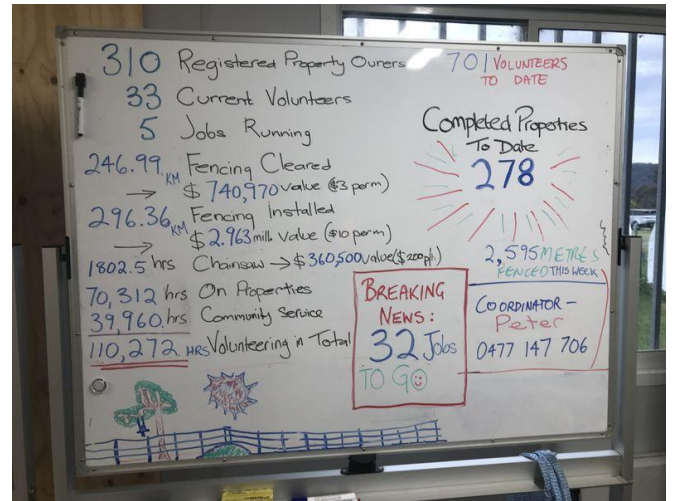 310 Registered Property Owners
33 Current Volunteers
5 Jobs Running
246.99 KM Fencing Cleared
→ $740,970 value ($3 per m)
296.36 KM Fencing Installed
→ $2.963 mill value ($10 per m)
1802.5 hrs Chainsaw → $360,500 value ($200 p/h)
70,312 hrs On Properties
39,960 hrs Community Service
110,272 HRS Volunteering in Total
701 VOLUNTEERS
TO DATE
Completed Properties
To Date
278
2,595 METRES
FENCED THIS WEEK
BREAKING
NEWS:
32 Jobs
TO GO
COORDINATOR -
Peter
0477 147 706